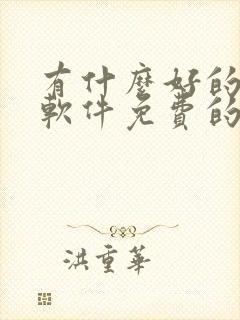 有什麼好的
軟件免費的
洪重華